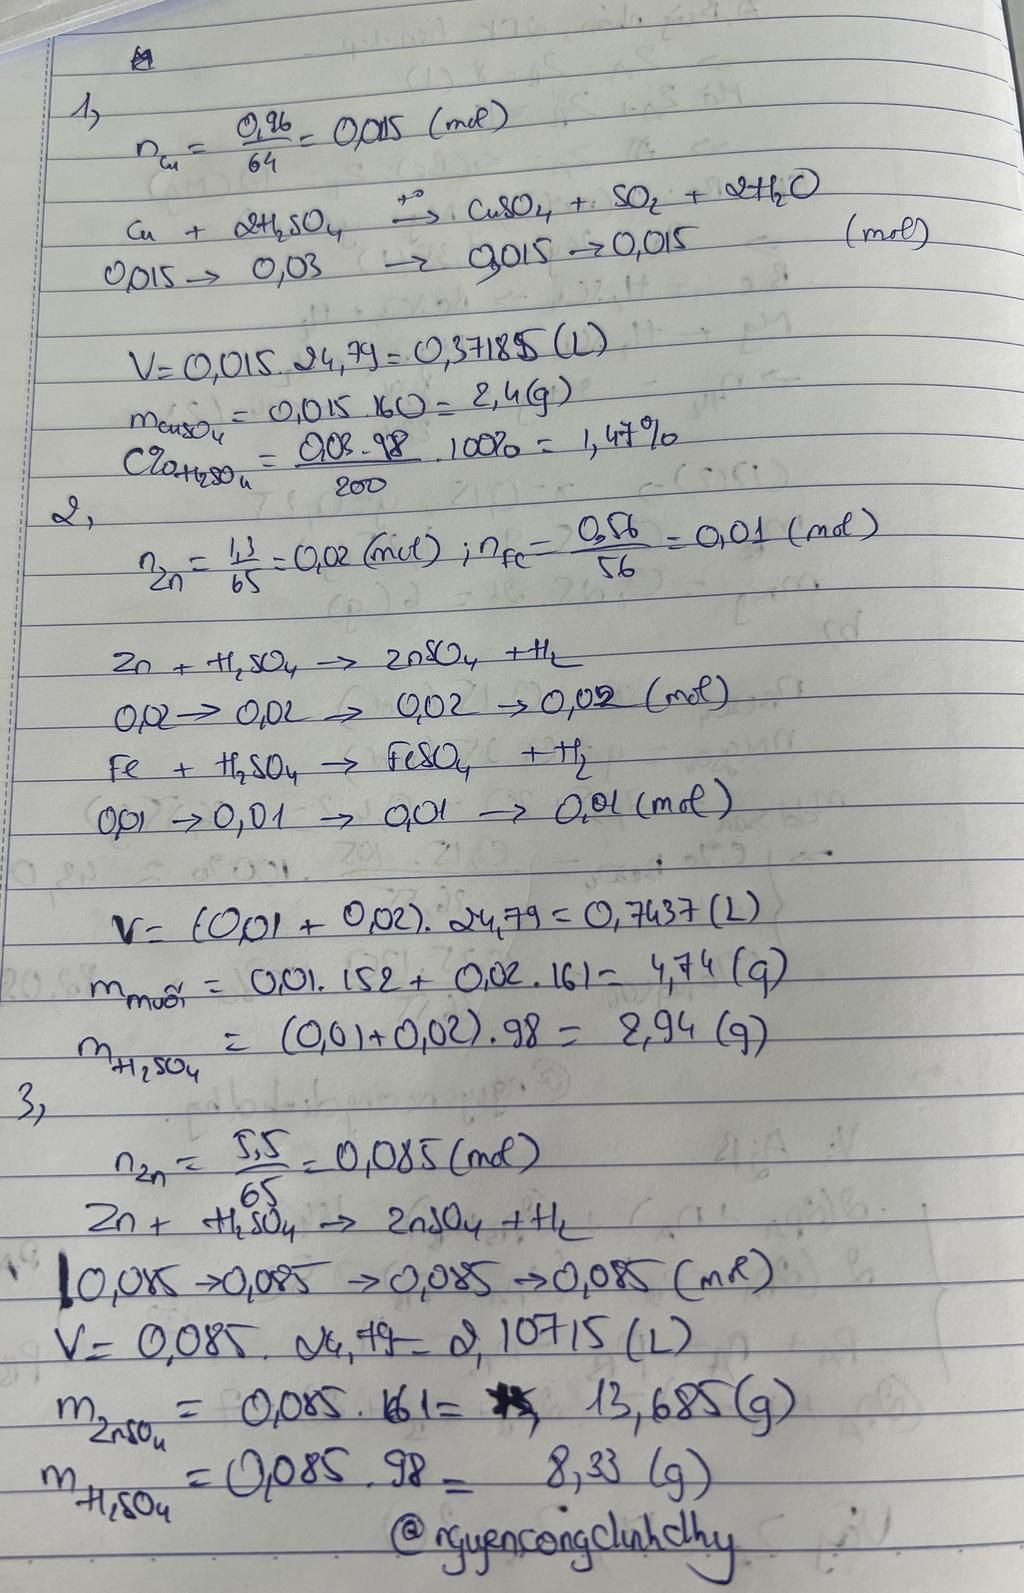 1,
n_Cu = 0,96/64 = 0,015 (mol)
Cu + 2H₂SO₄ →(t°) CuSO₄ + SO₂ + 2H₂O
0,015 → 0,03 → 0,015 → 0,015 (mol)
V = 0,015. 24,79 = 0,37185 (L)
m_CuSO₄ = 0,015. 160 = 2,4 (g)
C%_H₂SO₄ = 0,03.98/200 . 100% = 1,47%
2,
n_Zn = 1,3/65 = 0,02 (mol) ; n_Fe = 0,56/56 = 0,01 (mol)
Zn + H₂SO₄ → ZnSO₄ + H₂
0,02 → 0,02 → 0,02 → 0,02 (mol)
Fe + H₂SO₄ → FeSO₄ + H₂
0,01 → 0,01 → 0,01 → 0,01 (mol)
V = (0,01 + 0,02). 24,79 = 0,7437 (L)
m_muối = 0,01. 152 + 0,02. 161 = 4,74 (g)
m_H₂SO₄ = (0,01 + 0,02). 98 = 2,94 (g)
3,
n_Zn = 5,5/65 = 0,085 (mol)
Zn + H₂SO₄ → ZnSO₄ + H₂
0,085 → 0,085 → 0,085 → 0,085 (mol)
V = 0,085. 24,79 = 2,10715 (L)
m_ZnSO₄ = 0,085. 161 = 13,685 (g)
m_H₂SO₄ = 0,085. 98 = 8,33 (g)
@nguyencongdinhdhy